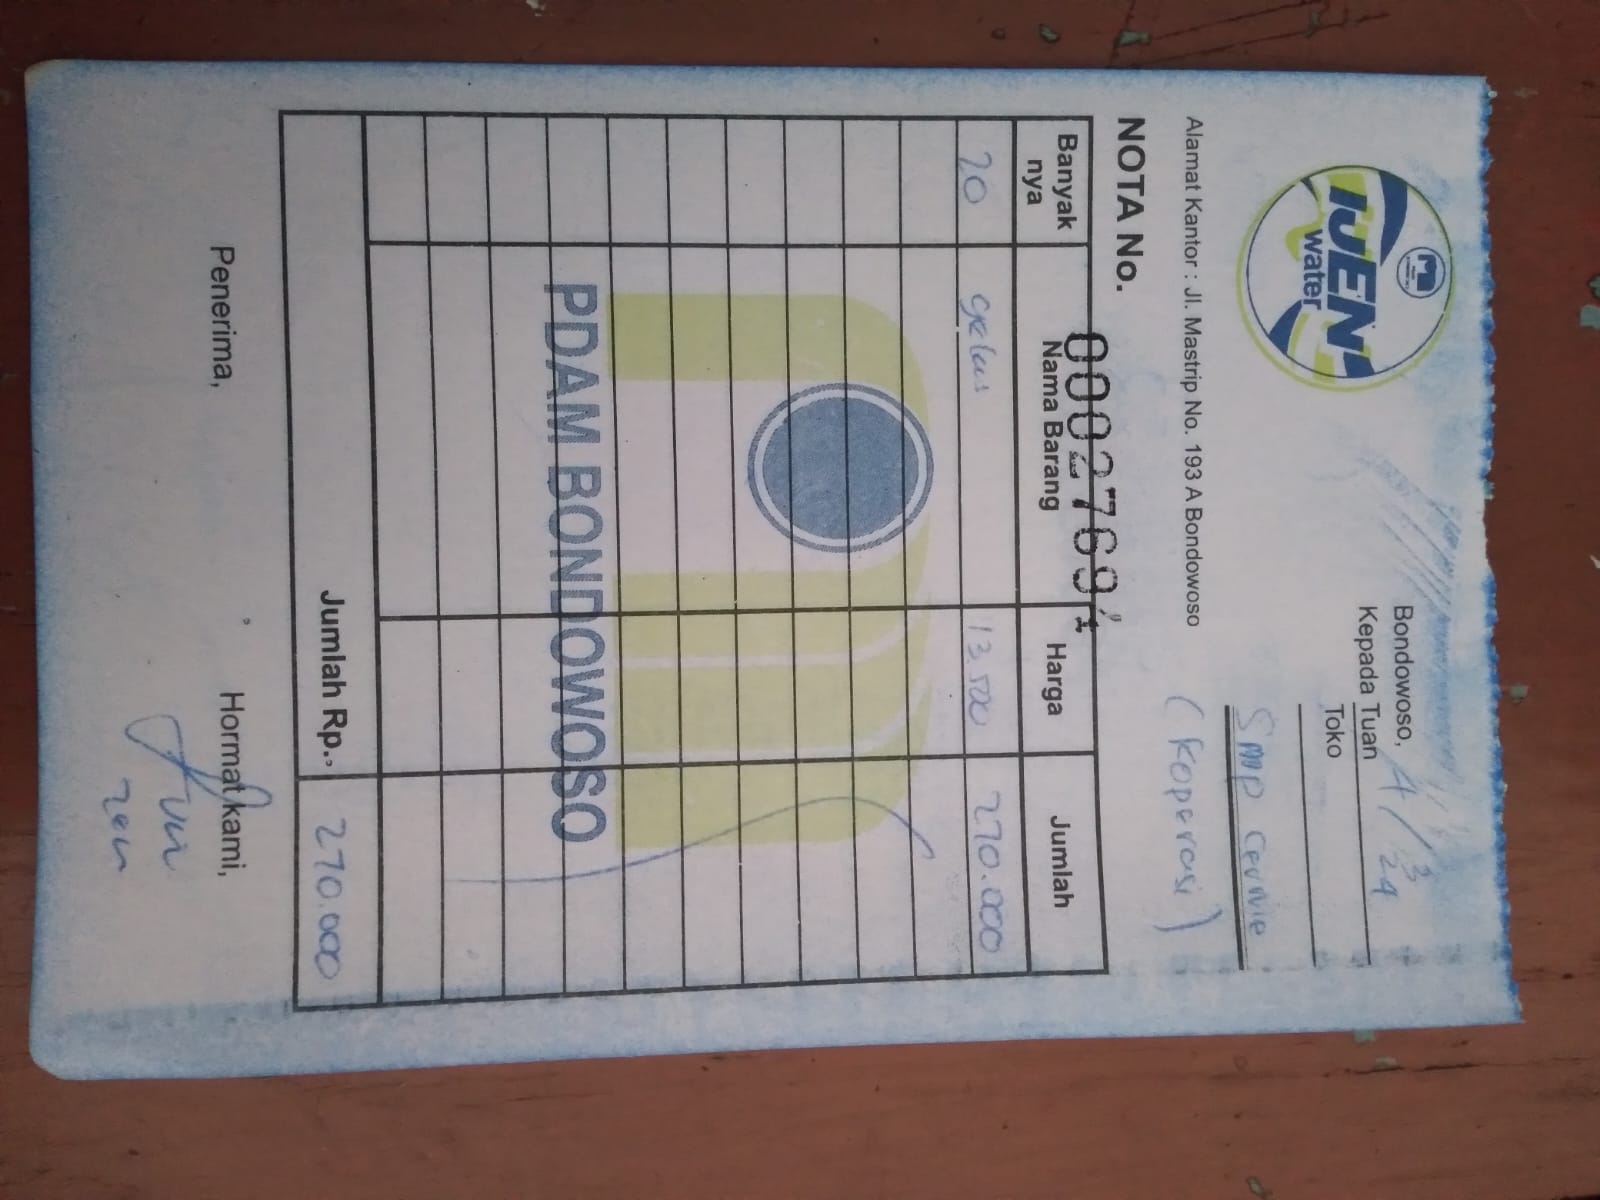 IJEN
water
Bondowoso, 4/3
24
Kepada Tuan
Toko
Smp cerme
(Koperasi)
Alamat Kantor : Jl. Mastrip No. 193 A Bondowoso
NOTA No.
00027694
Banyak nya Nama Barang Harga Jumlah
20 gelas 13.500 270.000
PDAM BONDOWOSO
Jumlah Rp.. 270.000
Penerima, Hormat kami,